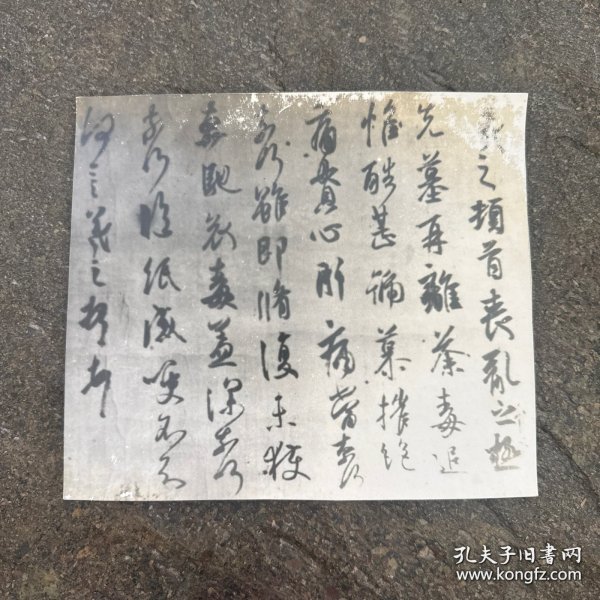 羲之頓首喪亂之極
先墓再離荼毒追
惟酷甚號慕摧絕
痛貫心肝痛當奈何
奈何雖即脩復未獲
奔馳哀毒益深奈何
奈何臨紙感哽不知
何言羲之頓首
孔夫子旧書网
www.kongfz.com